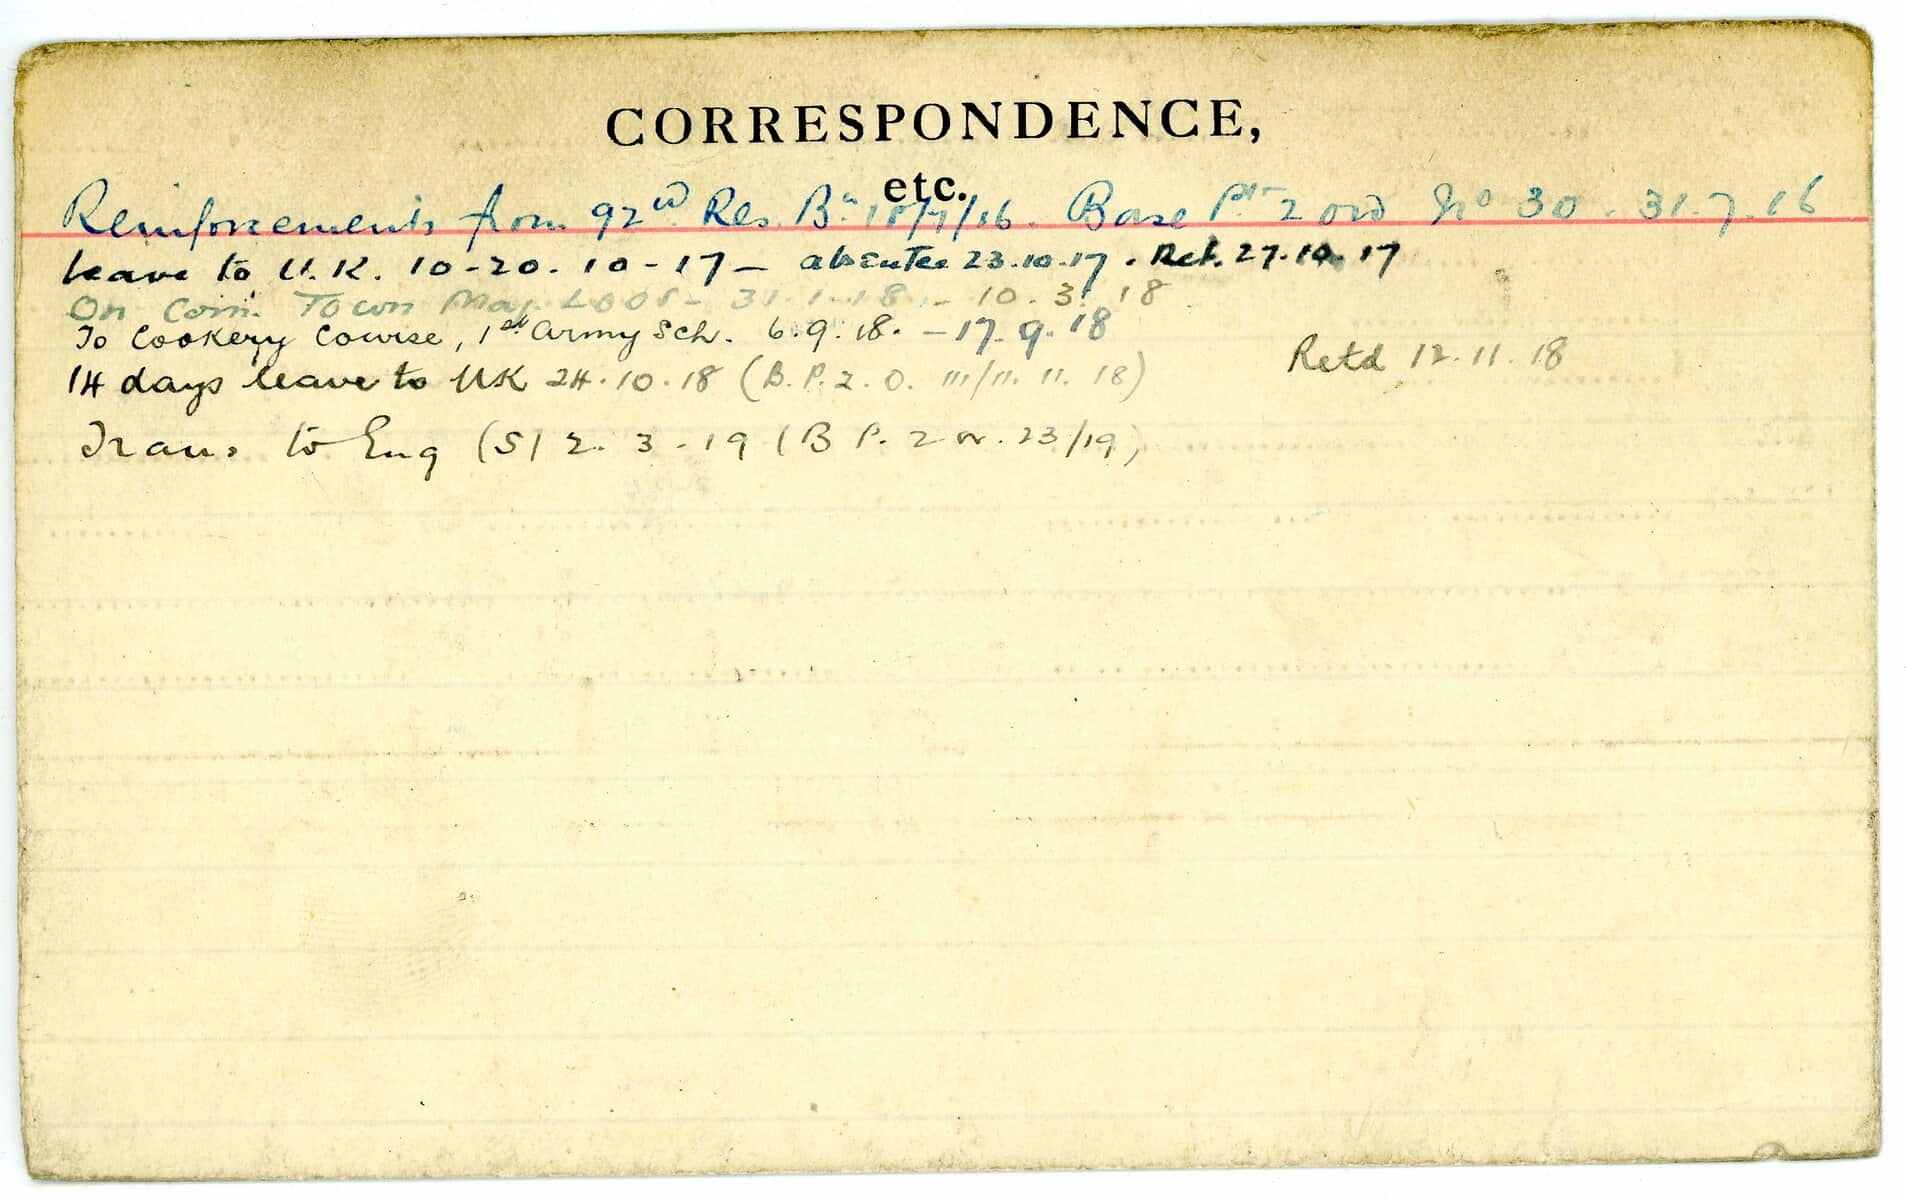 CORRESPONDENCE,
etc.
Reinforcements from 92nd Res. Bn 18/7/16. Base Pt 2 ord No 30. 31.7.16
leave to U.K. 10-20.10-17 - absentee 23.10.17. Ret. 27.10.17
On Com. Town Maj. LOOS - 31.1.18. - 10.3.18
To Cookery Course, 1st Army Sch. 6.9.18. - 17.9.18
14 days leave to UK 24.10.18 (B.P.2.O. 111/11.11.18) Retd 12.11.18
Trans to Eng (S) 2.3.19 (B P. 2 or. 23/19)